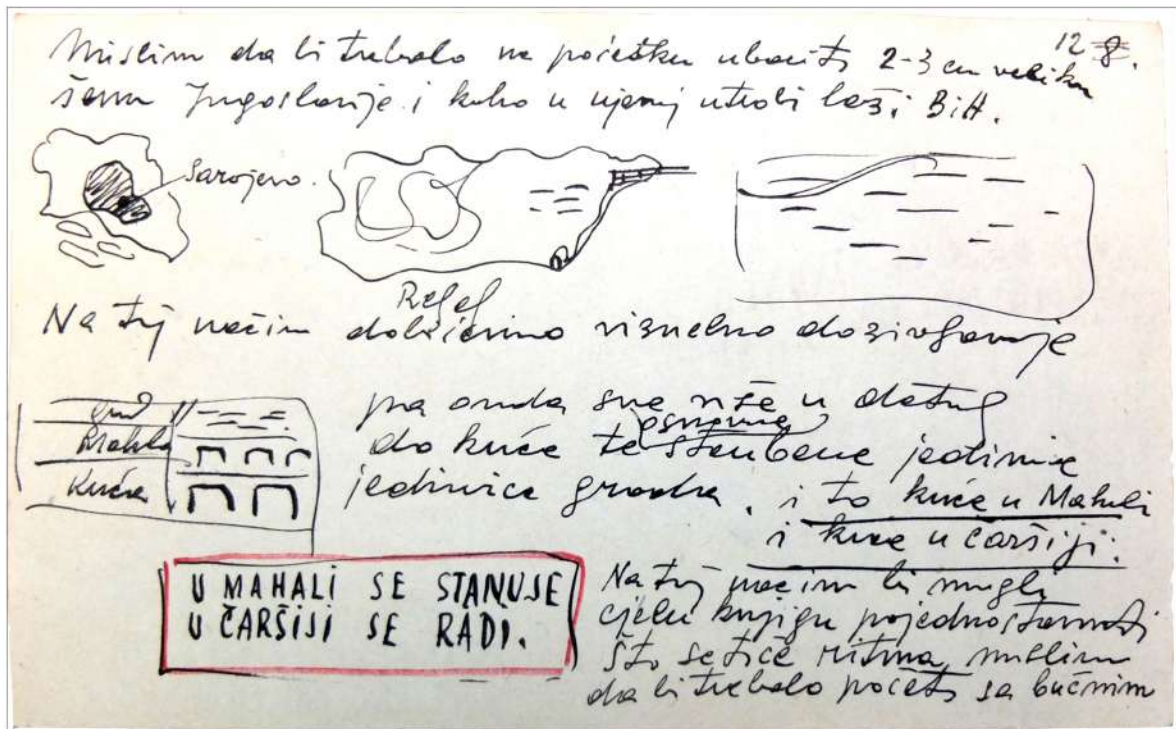 12 8.
Mislim da bi trebalo na početku ubaciti 2-3 cm veliku
šemu Jugoslavije i kako u njenoj utrobi leži BiH.
Sarajevo.
Reljef
Na taj način dobićemo vizuelno doživljavanje
grad
Mahala
Kuća
pa onda sve niže u detalj
do kuće te osnovne stambene jedinice
jedinice grada. i to kuće u Mahali
i kuće u čaršiji.
U MAHALI SE STANUJE
U ČARŠIJI SE RADI.
Na taj način bi mogli
cjelu knjigu pojednostaviti
što se tiče ritma, mislim
da bi trebalo početi sa bučnim